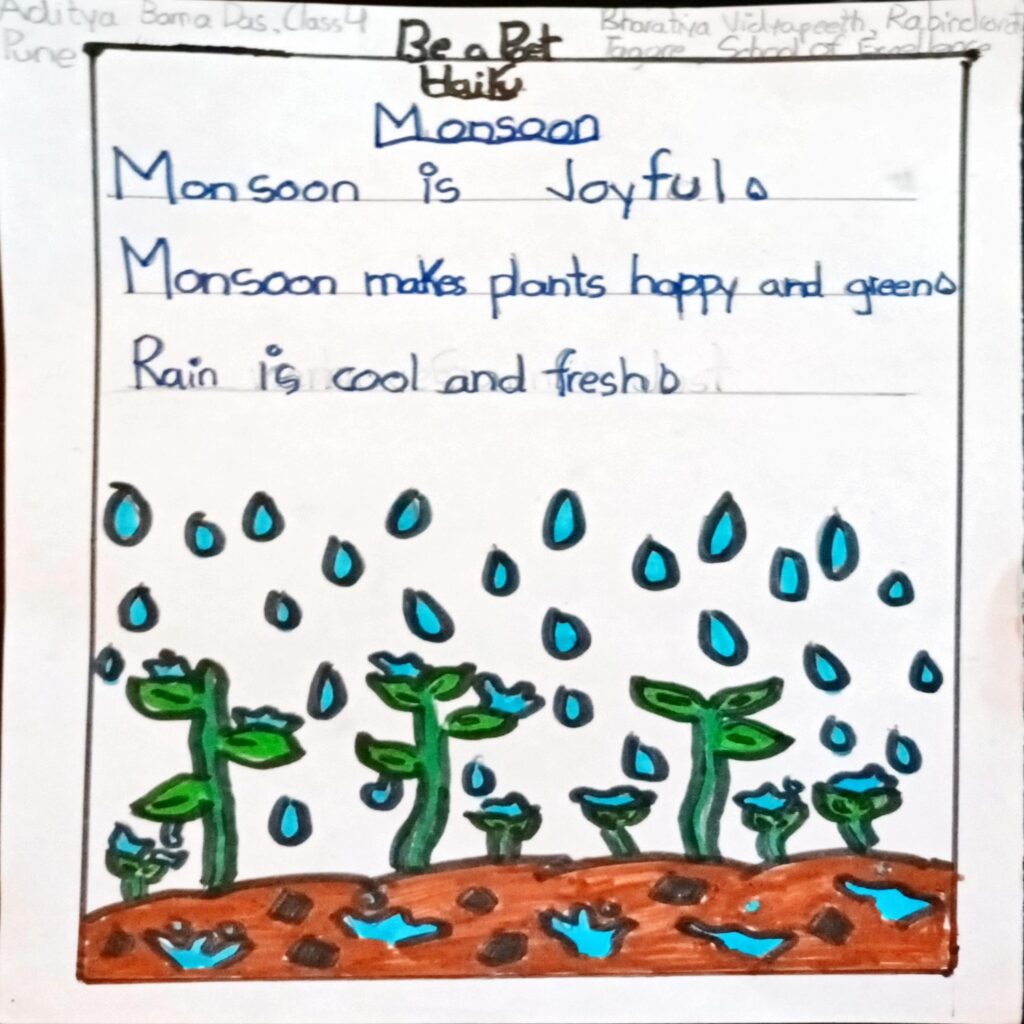 Aditya Bama Das, Class 4
Pune
Bharatiya Vidyapeeth, Rabindranath
Tagore School of Excellence
Be a Poet
Haiku
Monsoon
Monsoon is Joyful.
Monsoon makes plants happy and green.
Rain is cool and fresh.